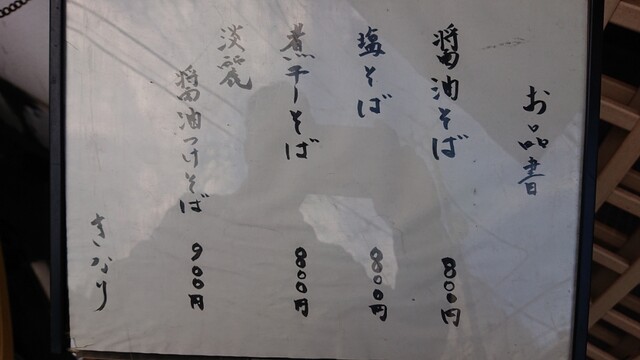 お品書
醤油そば 800円
塩そば 800円
煮干しそば 800円
淡麗
醤油つけそば 900円
きなり